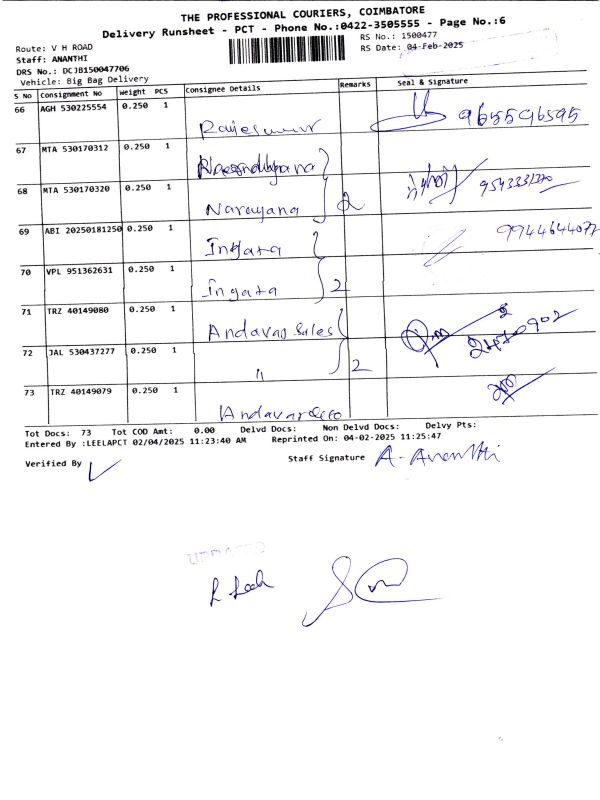 THE PROFESSIONAL COURIERS, COIMBATORE
Delivery Runsheet - PCT - Phone No.:0422-3505555 - Page No.:6
Route: V H ROAD
RS No.: 1500477
Staff: ANANTHI
RS Date: 04-Feb-2025
DRS No.: DCJB150047706
Vehicle: Big Bag Delivery
S No Consignment No Weight PCS Consignee Details Remarks Seal & Signature
66 AGH 530225554 0.250 1 9655596595
67 MTA 530170312 0.250 1
68 MTA 530170320 0.250 1 Narayana 2
69 ABI 20250181250 0.250 1 Ingata 9944644077
70 VPL 951362631 0.250 1 Ingata 2
71 TRZ 40149080 0.250 1 Andavar Sales
72 JAL 530437277 0.250 1 " 2
73 TRZ 40149079 0.250 1
Tot Docs: 73 Tot COD Amt: 0.00 Delvd Docs: Non Delvd Docs: Delvy Pts:
Entered By :LEELAPCT 02/04/2025 11:23:40 AM Reprinted On: 04-02-2025 11:25:47
Verified By
Staff Signature A. Ananthi